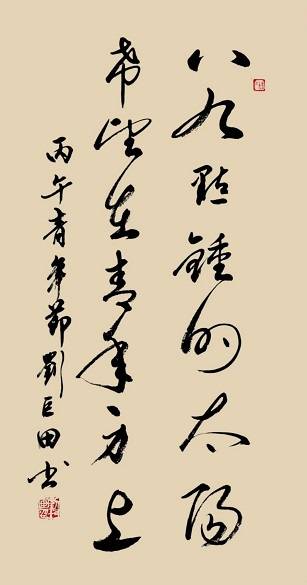 八九點鍾的太陽
希望在青年身上
丙午青年節劉巨田书